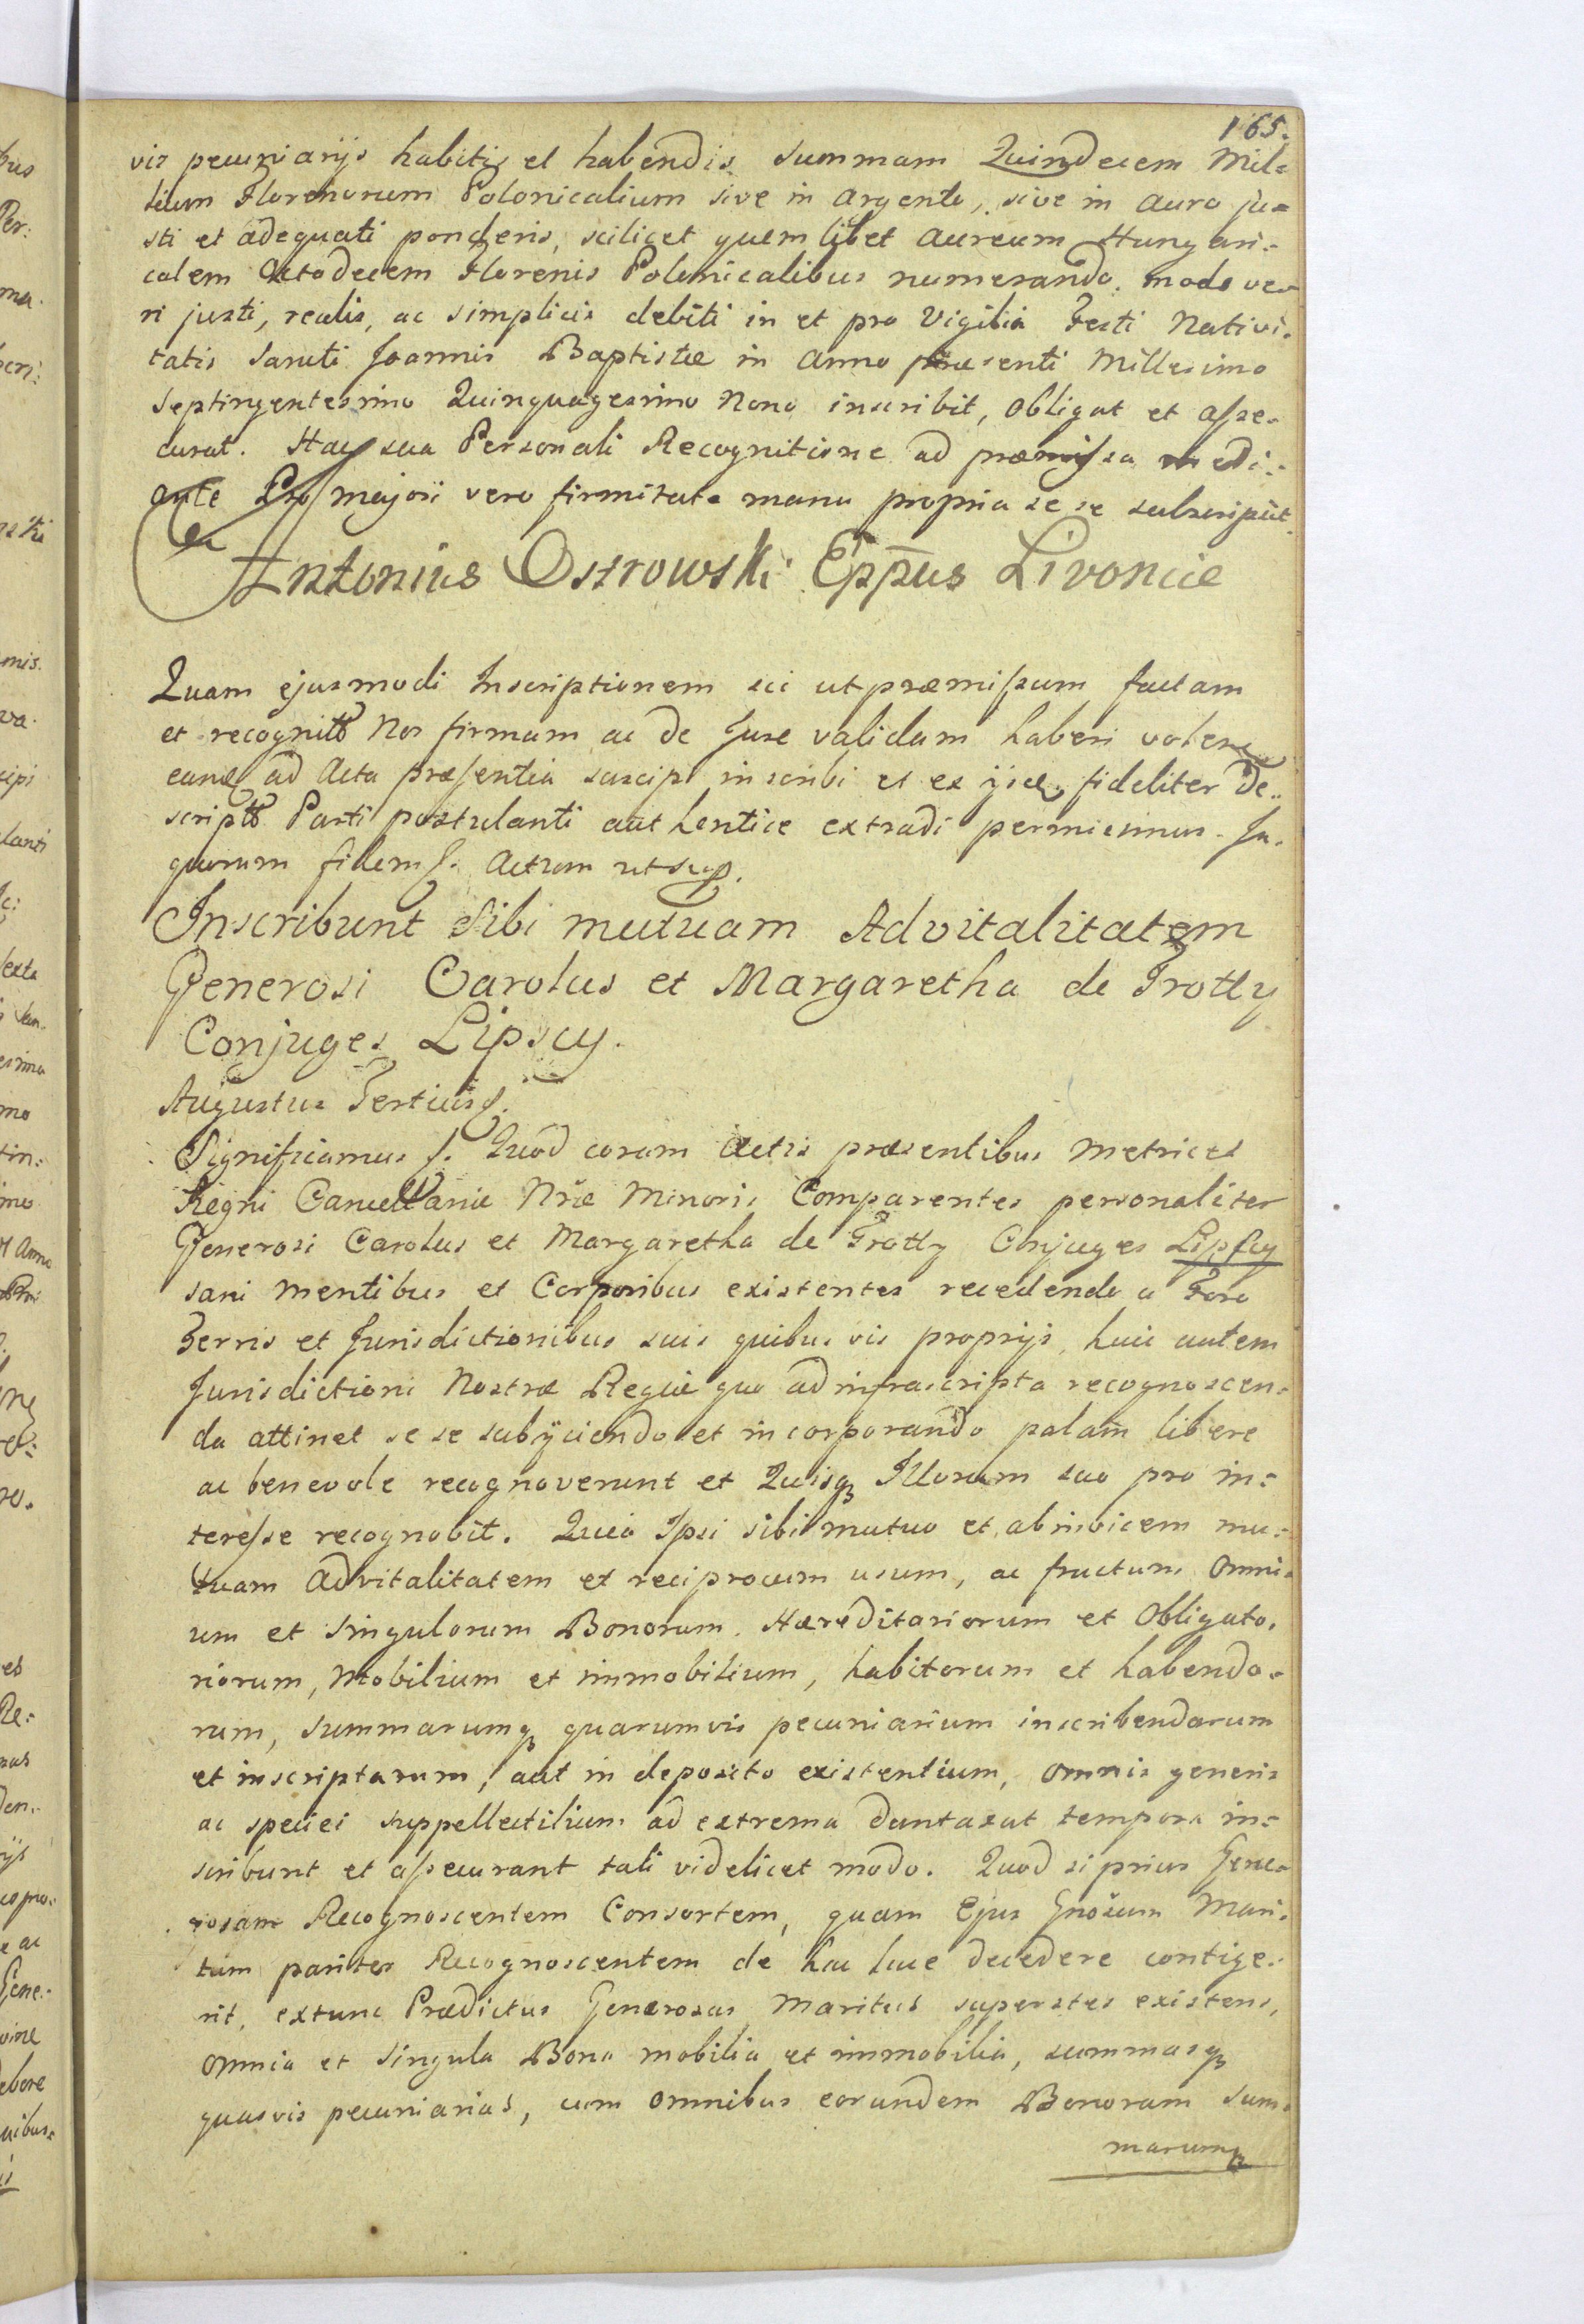 165.
vis pecuniarijs habitis et habendis summam Quindecem Mil=
lium Florenorum Polonicalium sive in argento, sive in auro ju=
sti et adequati ponderis, scilicet quemlibet aureum Hungari=
calem Octodecem Florenis Polonicalibus numerando, modo ve=
ri justi, realis, ac simplicis debiti in et pro Vigilia Festi Nativi=
tatis Sancti Joannis Baptistæ in Anno præsenti Millesimo
Septingentesimo Quinquagesimo Nono inscribit, obligat et asse=
curat. Hac sua Personali Recognitione ad præmissa medi=
ante Pro majori vero firmitate manu propria se se subscripsit.
Antonius Ostrowski Eppus Livoniæ
Quam ejusmodi Inscriptionem sic ut præmissum factam
et recognitã Nos firmam ac de Jure validam haberi volentes
eamq ad Acta præsentia suscipi inscribi et ex ijsdē fideliter de=
scriptã Parti postulanti authentice extradi permisimus. In
quorum fidem p. Actum ut sup.
Inscribunt Sibi mutuam Advitalitatem
Generosi Carolus et Margaretha de Trotty
Conjuges Lipscy.
Augustus Tertius p.
Significamus p. Quod coram Actis præsentibus Metrices
Regni Cancellariæ Nræ Minoris Comparentes personaliter
Generosi Carolus et Margaretha de Trotty Conjuges Lipscy
sani mentibus et Corporibus existentes recedendo a Foro
Terris et Jurisdictionibus suis quibusvis proprijs, huic autem
Jurisdictioni Nostræ Regiæ quo ad infrascripta recognoscen=
da attinet se se subijciendo et incorporando palam libere
ac benevole recognoverunt et Quisq Illorum suo pro in=
teresse recognobit. Quia Ipsi sibi mutuo et ab invicem mu=
tuam Advitalitatem et reciprocum usum, ac fructum omni=
um et singulorum Bonorum Hæreditariorum et Obligato=
riorum, Mobilium et immobilium, habitorum et habendo=
rum, summarumq quarumvis pecuniarium inscribendarum
et inscriptarum, aut in deposito existentium, omnis generis
ac speciei suppellectilium ad extrema duntaxat tempora in=
scribunt et assecurant tali videlicet modo. Quod si prius Gene=
rosam Recognoscentem Consortem, quam Ejus Gnõsum Mari=
tum pariter Recognoscentem de hac luce decedere contige=
rit, extunc Prædictus Generosus Maritus superstes existens,
omnia et singula Bona mobilia et immobilia, summasq
quasvis pecuniarias, cum omnibus eorundem Bonorum sum=
marumq